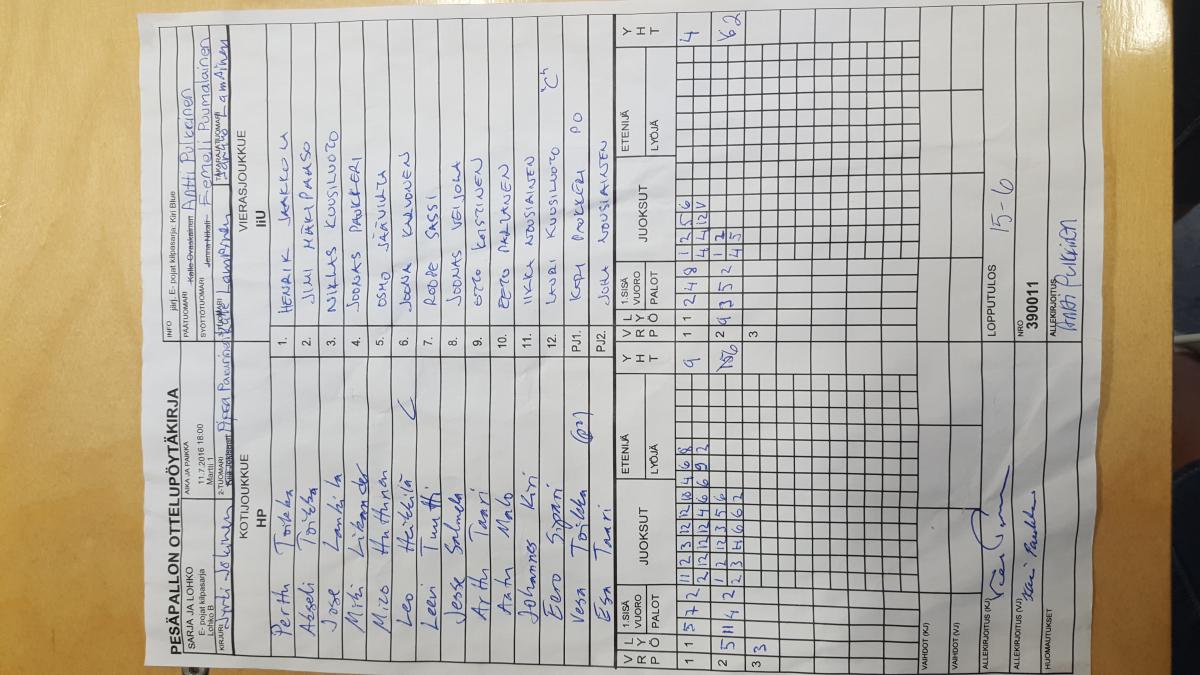 PESÄPALLON OTTELUPÖYTÄKIRJA
SARJA JA LOHKO
E- pojat kilpasarja
Lohko B
AIKA JA PAIKKA
11.7.2016 18:00
Martti 1
INFO järj. E- pojat kilpasarja: Kiri Blue
PÄÄTUOMARI Kalle Ovaskainen Antti Pulkkinen
SYÖTTÖTUOMARI Jenna Nikali Eemeli Puumalainen
KIRJURI Jyrki Jokinen
2-TUOMARI
TAKARAJATUOMARI
KOTIJOUKKUE
HP
VIERASJOUKKUE
IiU
Perttu Toikka 1. HENRIK JAAKKOLA
Akseli Toikka 2. JIMI MÄKIPAASO
Jose Lankila 3. NIKLAS KUUSILUOTO
4. JOONAS PAUKKERI
Mico Huttunen 5. OSMO
Leo Heikkilä C 6. JOONA KARVONEN
Leevi Tuutti 7. ROOPE SASSI
Jesse Salmela 8. JOONAS VEIJOLA
Arttu Taari 9. KOISTINEN
Aatu Malo 10. EETU
Johannes Kiri 11. IIKKA NOUSIAINEN
Eero 12. LAURI KUUSILUOTO "C"
Vesa Toikka (P2) PJ1. KARI PAUKKERI PO
Esa Taari PJ2. JUHA NOUSIAINEN
V R P L Y Ö 1.SISÄ VUORO PALOT JUOKSUT ETENIJÄ LYÖJÄ Y H T
V R P L Y Ö 1.SISÄ VUORO PALOT JUOKSUT ETENIJÄ LYÖJÄ Y H T
1 1 5 7 2 11 2 3 12 12 10 4 6 8 9
2 12 12 12 4 6 6 9 2
1 1 2 4 8 1 2 5 6 4
4 4 12 V
2 5 11 4 2 1 2 12 3 5 6
2 3 4 6 6 2
2 9 3 5 2 1 2
4 5
3 3
3
VAIHDOT (KJ)
VAIHDOT (VJ)
ALLEKIRJOITUS (KJ)
ALLEKIRJOITUS (VJ)
HUOMAUTUKSET
LOPPUTULOS 15-6
NRO
390011
ALLEKIRJOITUS
Antti Pulkkinen